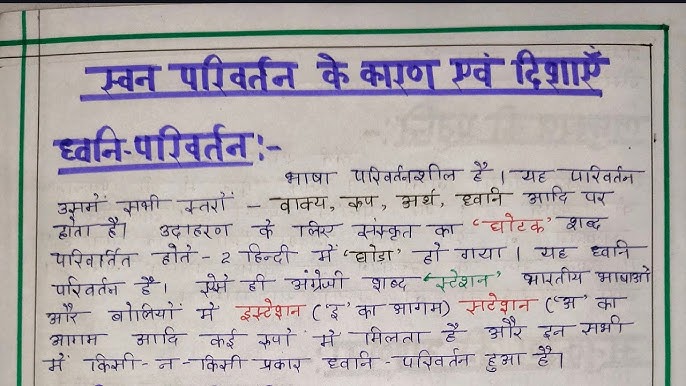 स्वन परिवर्तन के कारण एवं दिशाएँ
ध्वनि-परिवर्तन:-
भाषा परिवर्तनशील है । यह परिवर्तन
उसमें सभी स्तरों - वाक्य, रूप, अर्थ, ध्वनि आदि पर
होता है। उदाहरण के लिए संस्कृत का 'घोटक' शब्द
परिवार्तित होते-2 हिन्दी में 'घोड़ा' हो गया । यह ध्वनि
परिवर्तन है । ऐसे ही अंग्रेजी शब्द 'स्टेशन' भारतीय भाषाओं
और बोलियों में इस्टेशन ('इ' का आगम) सटेशन ('अ' का
आगम आदि कई रूपों में मिलता है और इन सभी
में किसी-न-किसी प्रकार ध्वनि-परिवर्तन हुआ है।